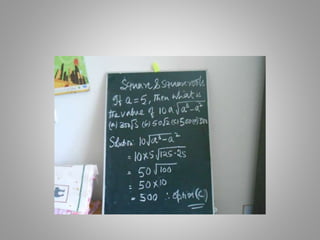 Square & square roots
If a = 5, then what is
the value of 10a√a³-a²
(A) 200√5 (b) 50√2 (c) 500
Solution: 10√a³-a²
= 10×5√125-25
= 50√100
= 50×10
= 500 ∴ option (C)